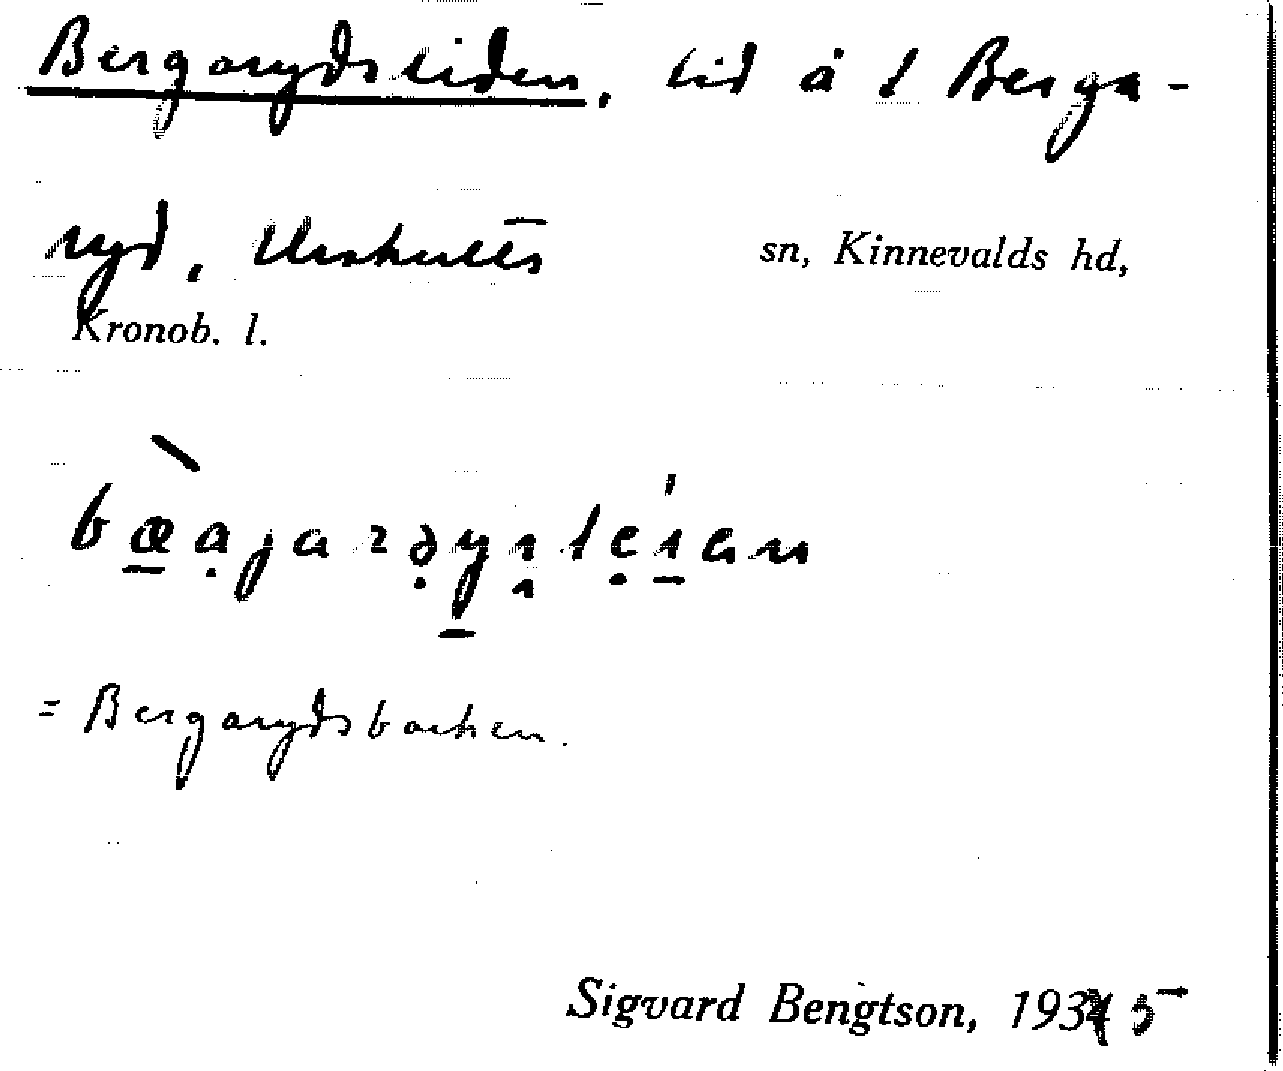 Bergarydsliden, lid å t Berga-
ryd, Urshults sn, Kinnevalds hd,
Kronob. l.
= Bergarydsbacken.
Sigvard Bengtson, 1935